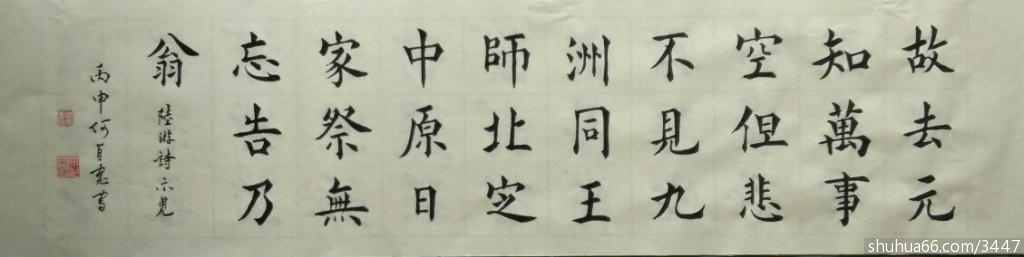 故去元
知萬事
空但悲
不見九
洲同王
師北㝎
中原日
家祭無
忘告乃
翁
陸游詩示兒
丙申何書
shuhua66.com/3447